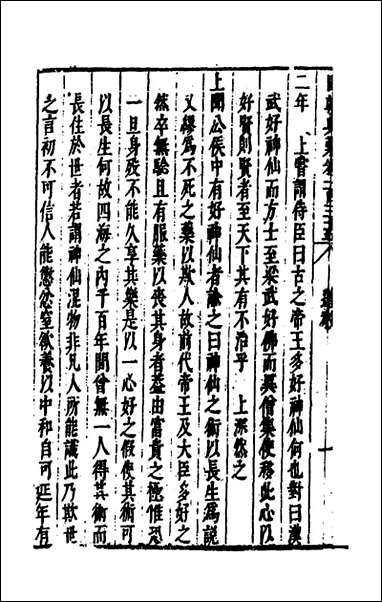 二年　上嘗謂侍臣曰古之帝王多好神仙何也對曰漢
武好神仙而方士至梁武好佛而異僧集使移此心以
好賢則賢者至天下其有不治乎　上深然之
上聞公侯中有好神仙者諭之曰神仙之術以長生為說
又繆為不死之藥以欺人故前代帝王及大臣多好之
然卒無驗且有服藥以喪其身者葢由富貴之極惟恐
一旦身歿不能久享其樂是以一心好之假使其術可
以長生何故四海之內千百年間曾無一人得其術而
長住於世者若謂神仙混物非凡人所能識此乃欺世
之言初不可信人能懲忿窒欲養以中和自可延年有